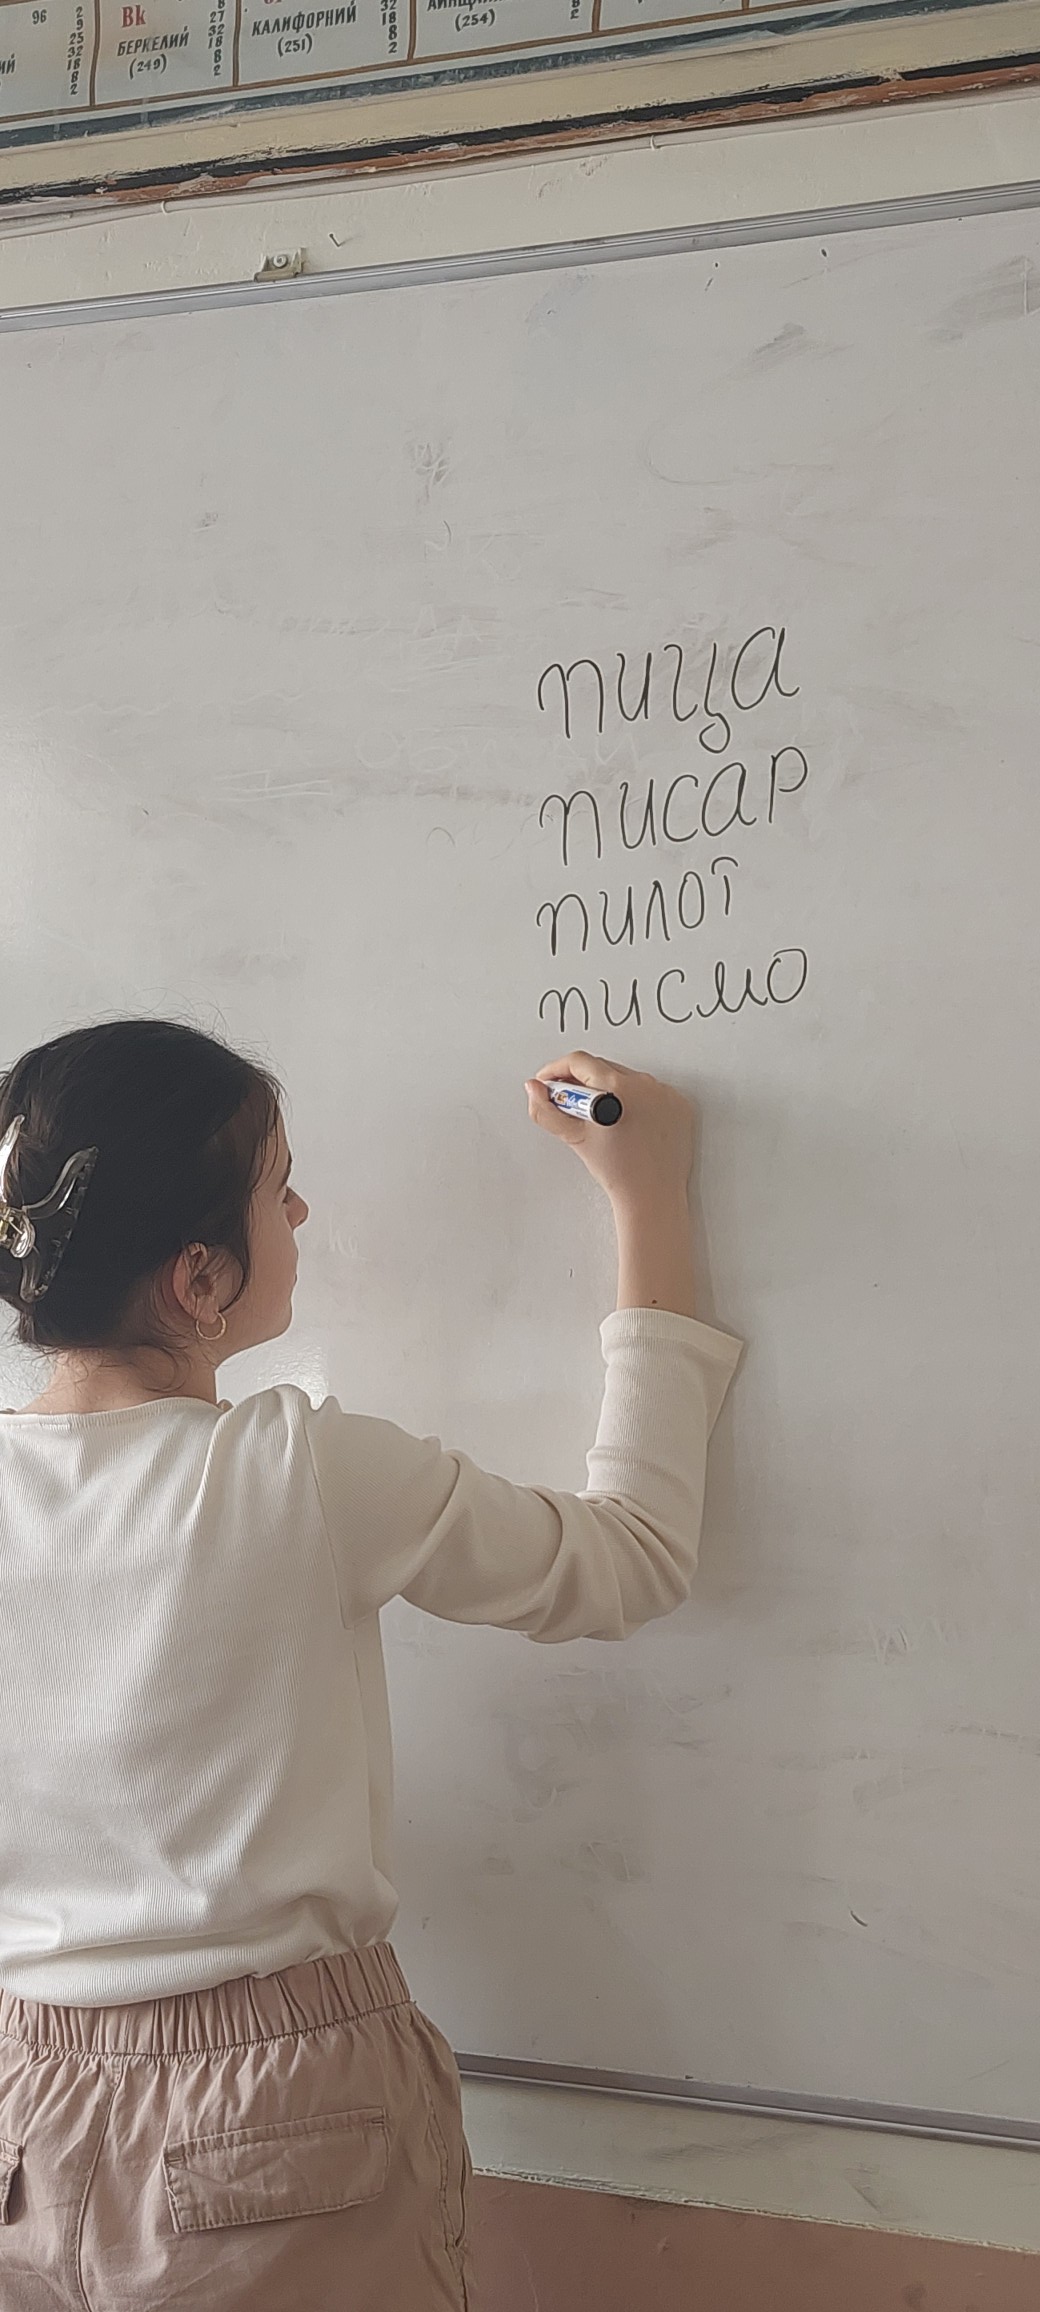 96 2 9 25 32 18 8 2 Bk БЕРКЕЛИЙ (249) 8 27 32 18 8 2 КАЛИФОРНИЙ (251) 32 18 8 2 (254) 8 2
пица
писар
пилот
писмо